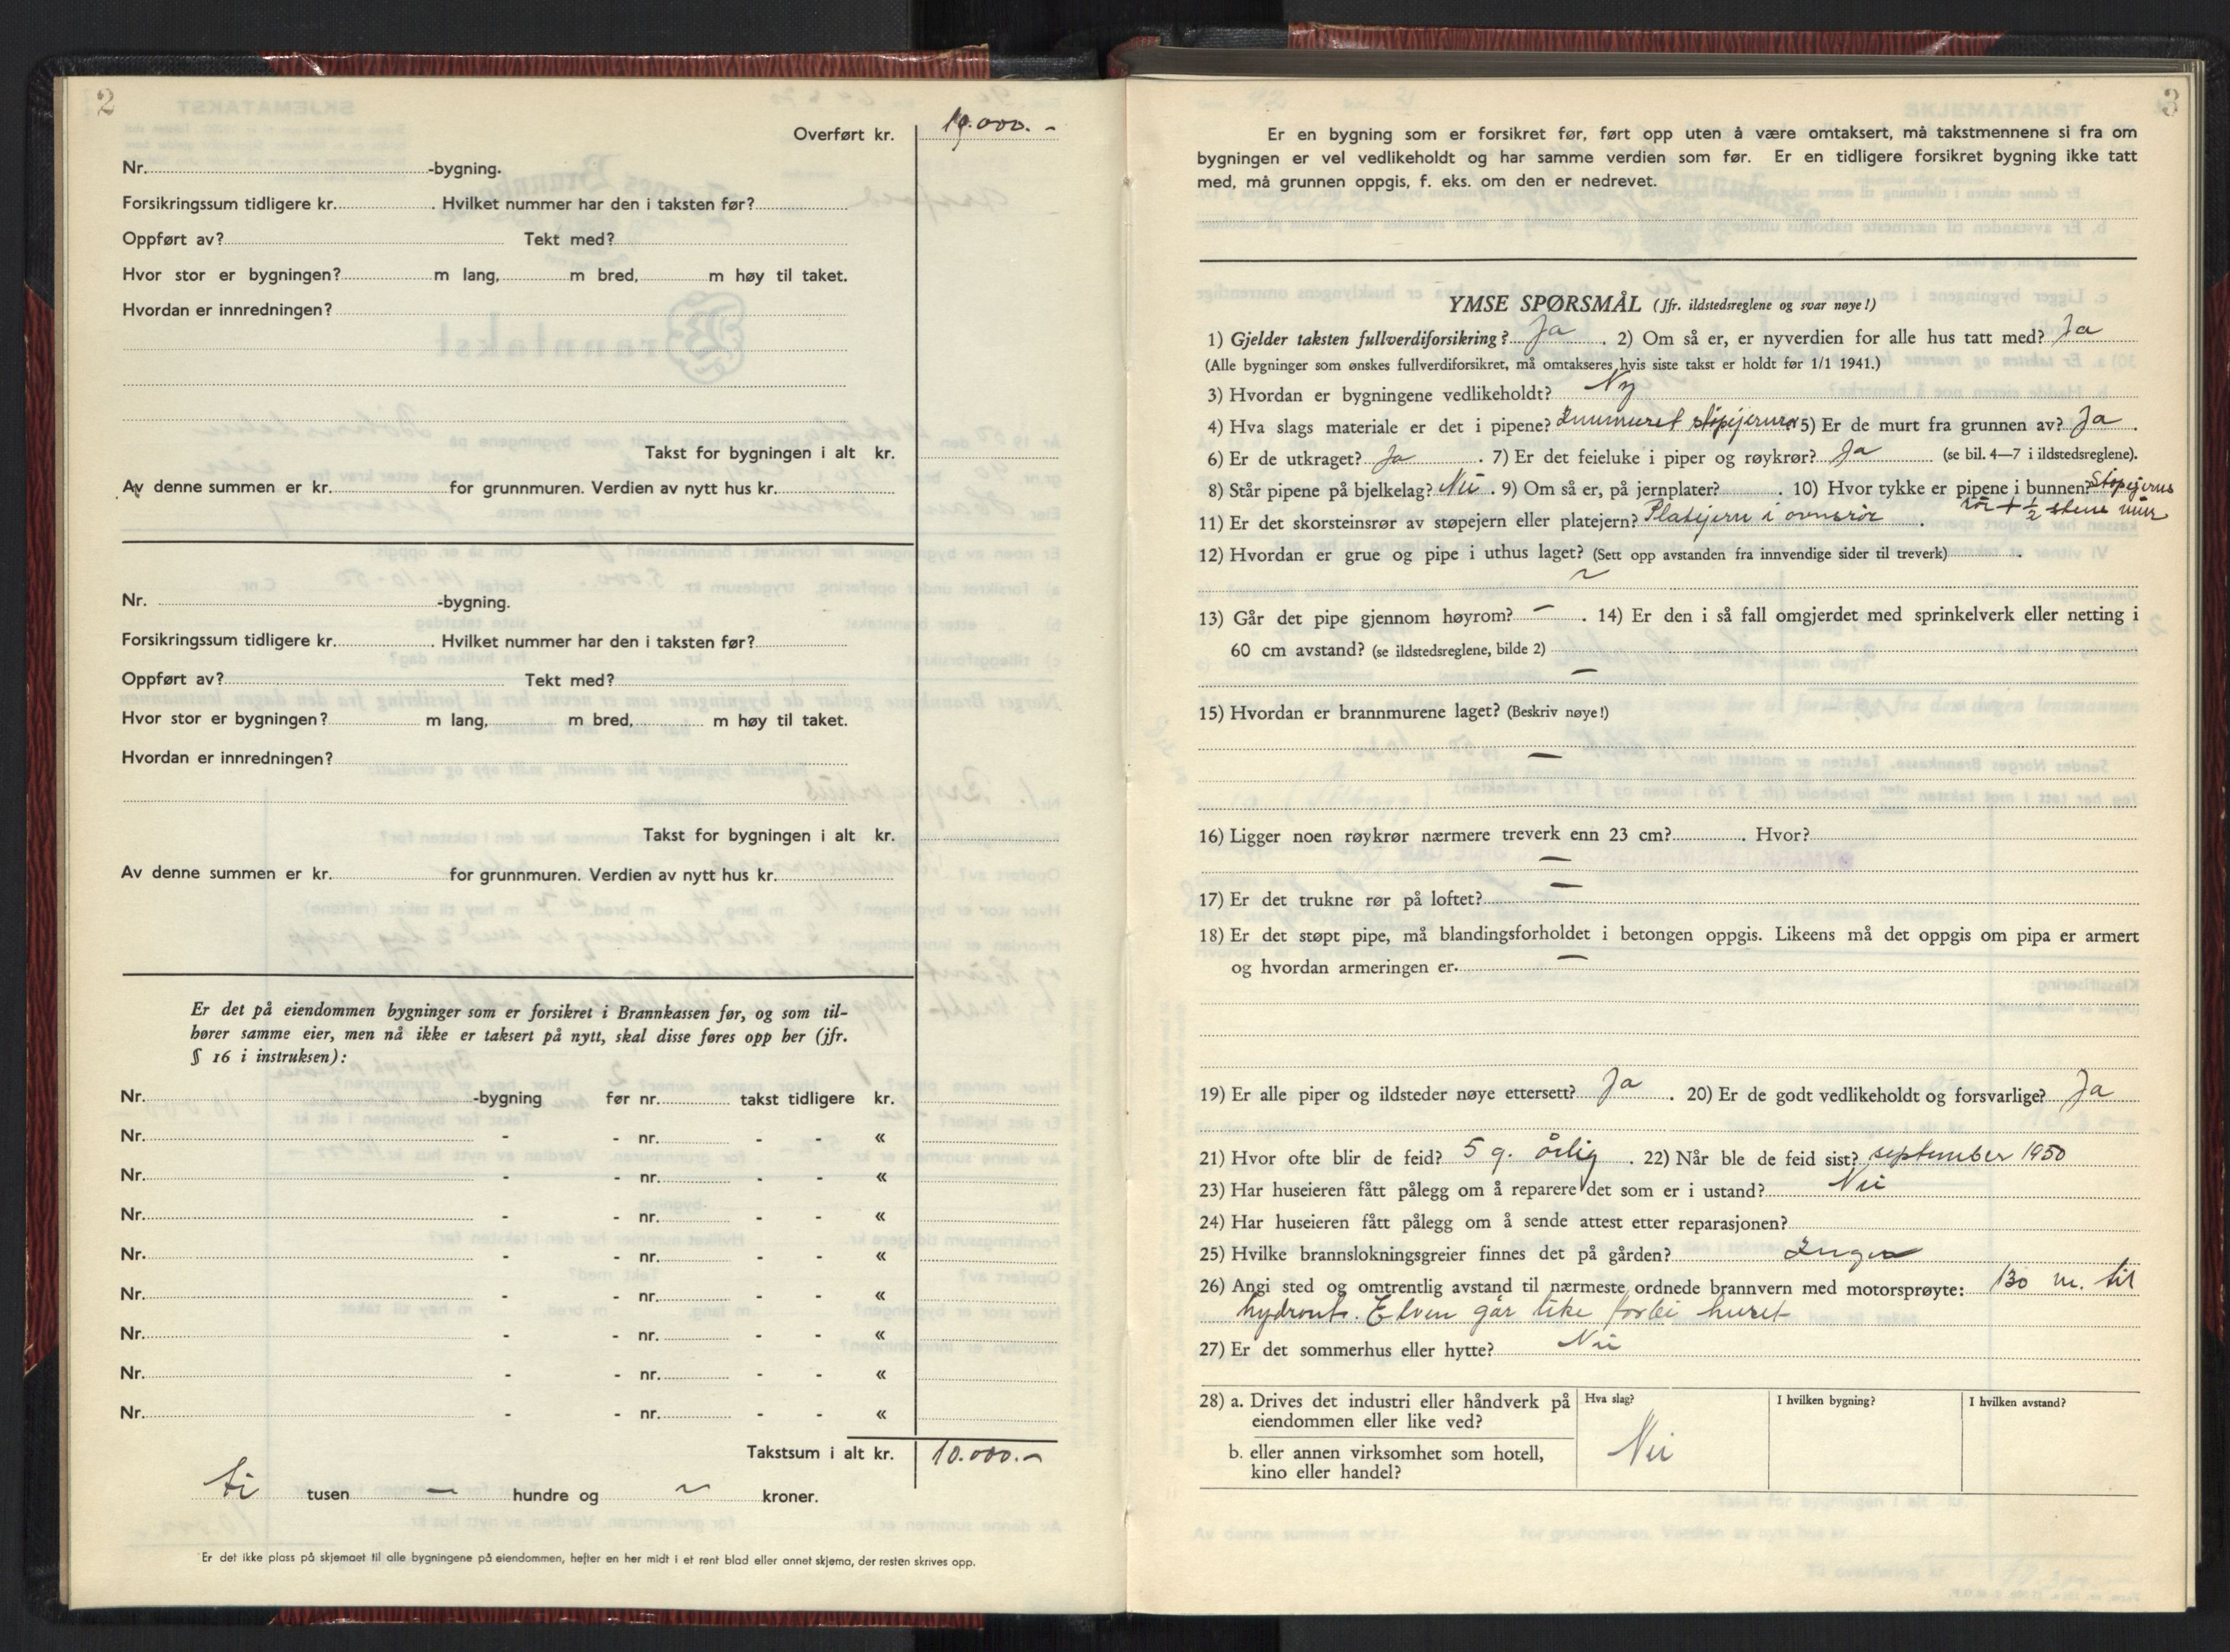 2
Overført kr. 10.000.-
Nr. -bygning.
Forsikringssum tidligere kr. . Hvilket nummer har den i taksten før?
Oppført av? Tekt med?
Hvor stor er bygningen? m lang, m bred, m høy til taket.
Hvordan er innredningen?
Takst for bygningen i alt kr.
Av denne summen er kr. for grunnmuren. Verdien av nytt hus kr.
Nr. -bygning.
Forsikringssum tidligere kr. . Hvilket nummer har den i taksten før?
Oppført av? Tekt med?
Hvor stor er bygningen? m lang, m bred, m høy til taket.
Hvordan er innredningen?
Takst for bygningen i alt kr.
Av denne summen er kr. for grunnmuren. Verdien av nytt hus kr.
Er det på eiendommen bygninger som er forsikret i Brannkassen før, og som til-
hører samme eier, men nå ikke er taksert på nytt, skal disse føres opp her (jfr.
§ 16 i instruksen):
Nr. -bygning før nr. takst tidligere kr.
Nr. - - nr. - - «
Nr. - - nr. - - «
Nr. - - nr. - - «
Nr. - - nr. - - «
Nr. - - nr. - - «
Nr. - - nr. - - «
Nr. - - nr. - - «
Nr. - - nr. - - «
Takstsum i alt kr. 10.000.-
ti tusen — hundre og ~ kroner.
Er det ikke plass på skjemaet til alle bygningene på eiendommen, hefter en her midt i et rent blad eller annet skjema, der resten skrives opp.
3
Er en bygning som er forsikret før, ført opp uten å være omtaksert, må takstmennene si fra om
bygningen er vel vedlikeholdt og har samme verdien som før. Er en tidligere forsikret bygning ikke tatt
med, må grunnen oppgis, f. eks. om den er nedrevet.
YMSE SPØRSMÅL (Jfr. ildstedsreglene og svar nøye!)
1) Gjelder taksten fullverdiforsikring? Ja . 2) Om så er, er nyverdien for alle hus tatt med? Ja
(Alle bygninger som ønskes fullverdiforsikret, må omtakseres hvis siste takst er holdt før 1/1 1941.)
3) Hvordan er bygningene vedlikeholdt? Ny
4) Hva slags materiale er det i pipene? Innmuret støpejernsrør 5) Er de murt fra grunnen av? Ja .
6) Er de utkraget? Ja . 7) Er det feieluke i piper og røykrør? Ja (se bil. 4—7 i ildstedsreglene).
8) Står pipene på bjelkelag? Nei . 9) Om så er, på jernplater? . 10) Hvor tykke er pipene i bunnen? Støpejerns
rør + ½ stens mur
11) Er det skorsteinsrør av støpejern eller platejern? Platejern i ovnsrør .
12) Hvordan er grue og pipe i uthus laget? (Sett opp avstanden fra innvendige sider til treverk) .
~
13) Går det pipe gjennom høyrom? — . 14) Er den i så fall omgjerdet med sprinkelverk eller netting i
60 cm avstand? (se ildstedsreglene, bilde 2)
—
15) Hvordan er brannmurene laget? (Beskriv nøye!)
—
16) Ligger noen røykrør nærmere treverk enn 23 cm? . Hvor?
—
17) Er det trukne rør på loftet? —
18) Er det støpt pipe, må blandingsforholdet i betongen oppgis. Likeens må det oppgis om pipa er armert
og hvordan armeringen er. —
19) Er alle piper og ildsteder nøye ettersett? Ja . 20) Er de godt vedlikeholdt og forsvarlige? Ja
21) Hvor ofte blir de feid? 5 g. årlig . 22) Når ble de feid sist? september 1950
23) Har huseieren fått pålegg om å reparere det som er i ustand? Nei
24) Har huseieren fått pålegg om å sende attest etter reparasjonen?
25) Hvilke brannslokningsgreier finnes det på gården? Ingen
26) Angi sted og omtrentlig avstand til nærmeste ordnede brannvern med motorsprøyte: 130 m. til
hydrant. Elven går like forbi huset
27) Er det sommerhus eller hytte? Nei
28) a. Drives det industri eller håndverk på
eiendommen eller like ved?
b. eller annen virksomhet som hotell,
kino eller handel?
Hva slag?
Nei
I hvilken bygning?
I hvilken avstand?